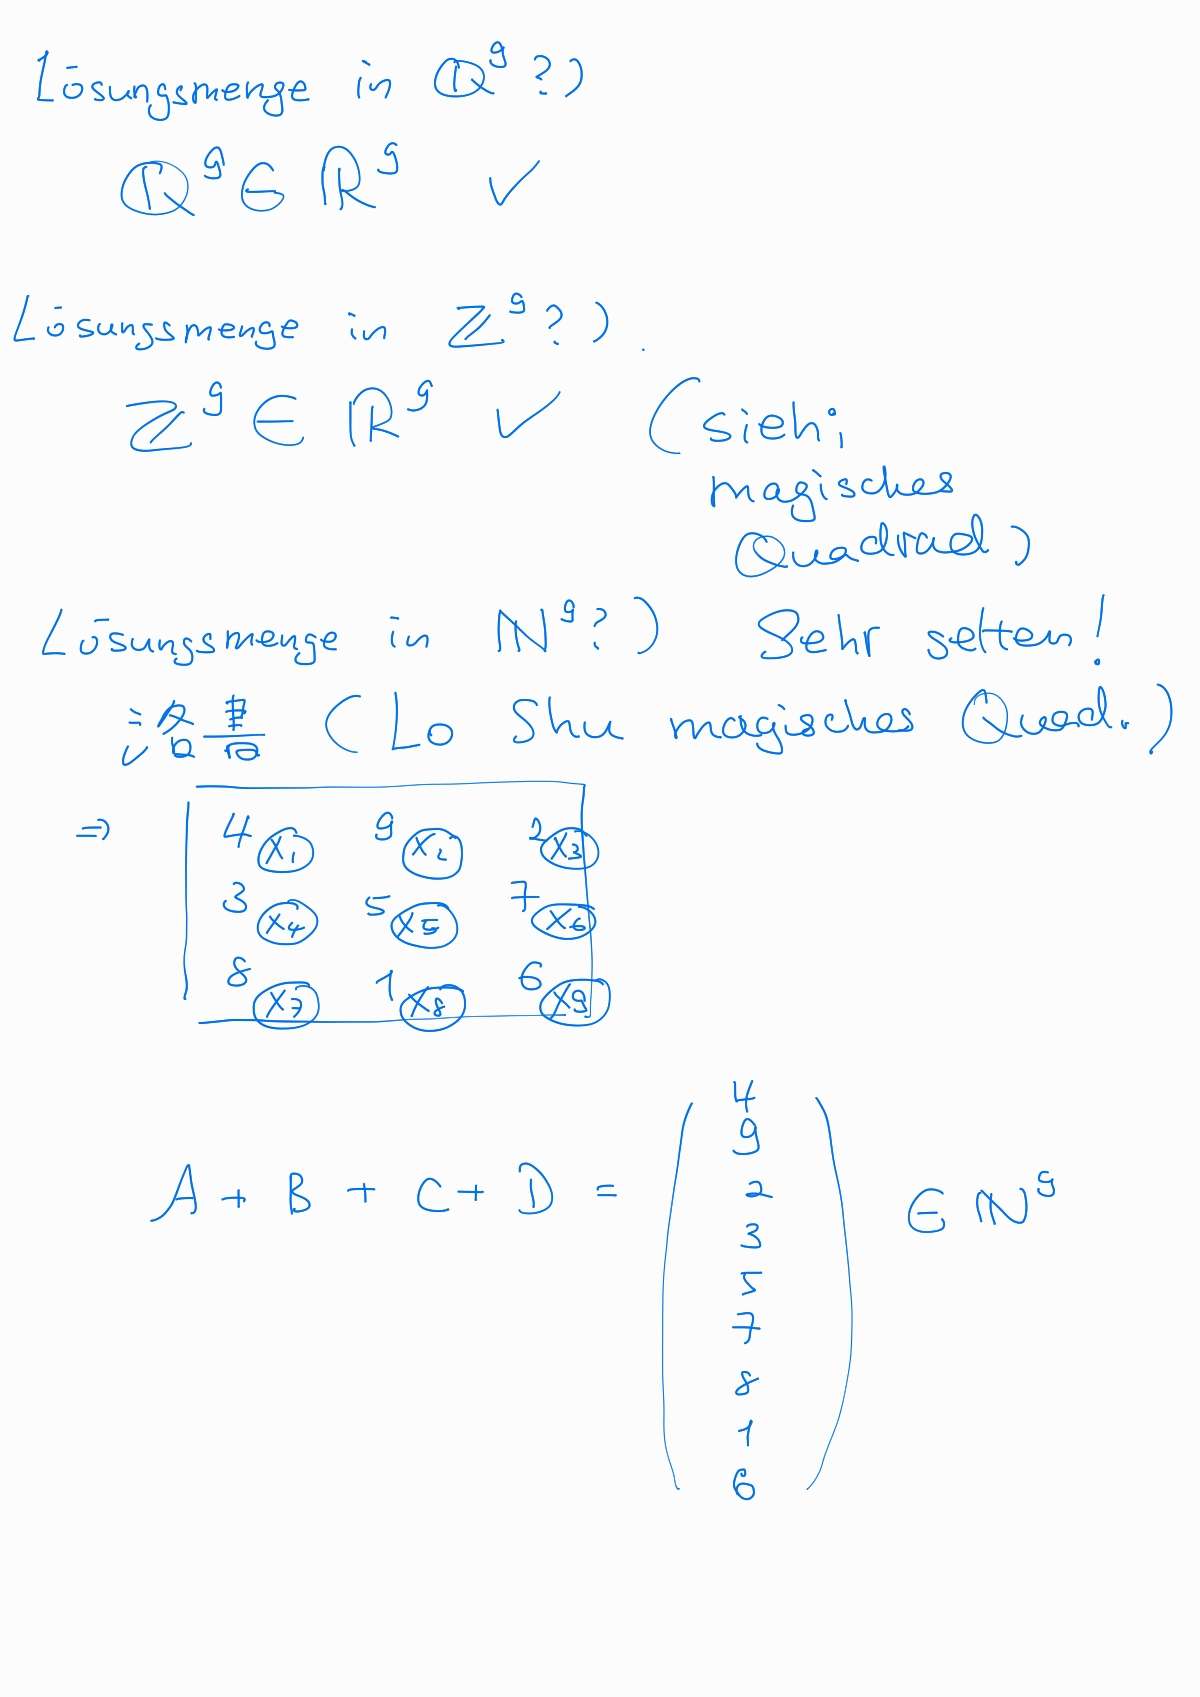 Lösungsmenge in ℚ⁹?)
ℚ⁹ ∈ ℝ⁹ ✓
Lösungsmenge in ℤ⁹?).
ℤ⁹ ∈ ℝ⁹ ✓ (sieh;
magisches
Quadrad)
Lösungsmenge in ℕ⁹?) Sehr selten!
洛書 (Lo Shu magisches Quad.)
⇒ 4 x₁ 9 x₂ 2 x₃
3 x₄ 5 x₅ 7 x₆
8 x₇ 1 x₈ 6 x₉
4
9
A + B + C + D = 2 ∈ ℕ⁹
3
5
7
8
1
6